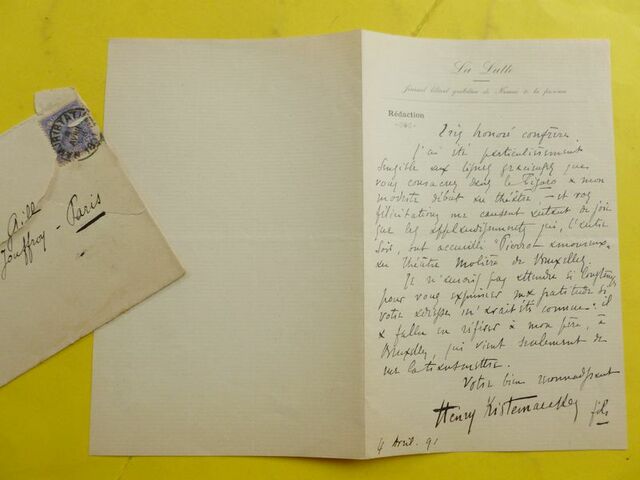 La Lutte
Journal libéral quotidien de Namur & de la province
Rédaction
Très honoré confrère
J'ai été particulièrement
sensible aux lignes gracieuses que
vous consacrez dans le Figaro à mon
modeste début au théâtre, – et vos
félicitations me causent autant de joie
que les applaudissements qui, l'autre
soir, ont accueilli Pierrot amoureux
au théâtre Molière de Bruxelles.
Je n'aurais pas attendu si longtemps
pour vous exprimer ma gratitude si
votre adresse m'avait été connue : il
a fallu en référer à mon père, à
Bruxelles, qui vient seulement de
me la transmettre.
Votre bien reconnaissant
Henry Kistemaeckers
fils
4 Avril. 91
Jouffroy - Paris